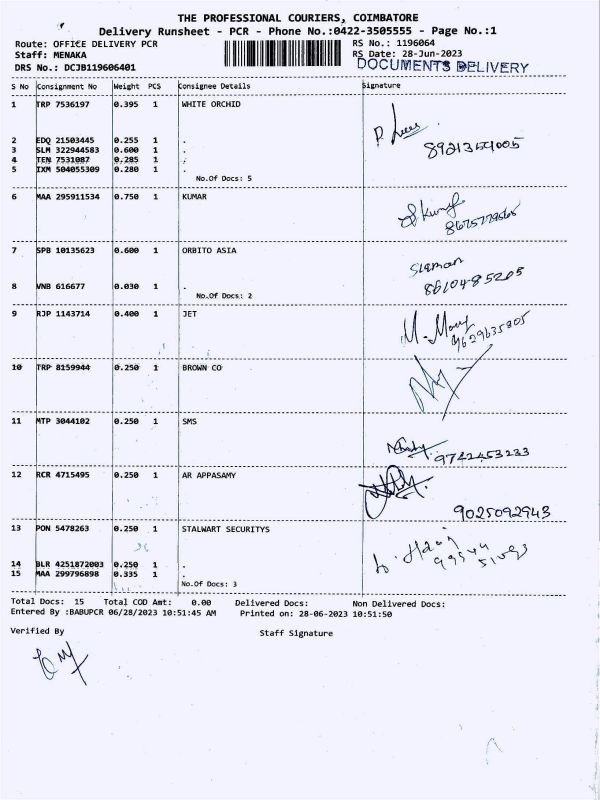 THE PROFESSIONAL COURIERS, COIMBATORE
Delivery Runsheet - PCR - Phone No.:0422-3505555 - Page No.:1
Route: OFFICE DELIVERY PCR RS No.: 1196064
Staff: MENAKA RS Date: 28-Jun-2023
DRS No.: DCJB119606401 DOCUMENTS DELIVERY
S No Consignment No Weight PCS Consignee Details Signature
1 TRP 7536197 0.395 1 WHITE ORCHID
2 EDQ 21503445 0.255 1 .
3 SLM 322944583 0.600 1 .
4 TEN 7531087 0.285 1 .
5 IXM 504055309 0.280 1 .
No.Of Docs: 5
6 MAA 295911534 0.750 1 KUMAR
7 SPB 10135623 0.600 1 ORBITO ASIA
8 VNB 616677 0.030 1 .
No.Of Docs: 2
9 RJP 1143714 0.400 1 JET
10 TRP 8159944 0.250 1 BROWN CO
11 MTP 3044102 0.250 1 SMS
9742453233
12 RCR 4715495 0.250 1 AR APPASAMY
9025092943
13 PON 5478263 0.250 1 STALWART SECURITYS
14 BLR 4251872003 0.250 1 .
15 MAA 299796898 0.335 1 .
No.Of Docs: 3
Total Docs: 15 Total COD Amt: 0.00 Delivered Docs: Non Delivered Docs:
Entered By :BABUPCR 06/28/2023 10:51:45 AM Printed on: 28-06-2023 10:51:50
Verified By Staff Signature